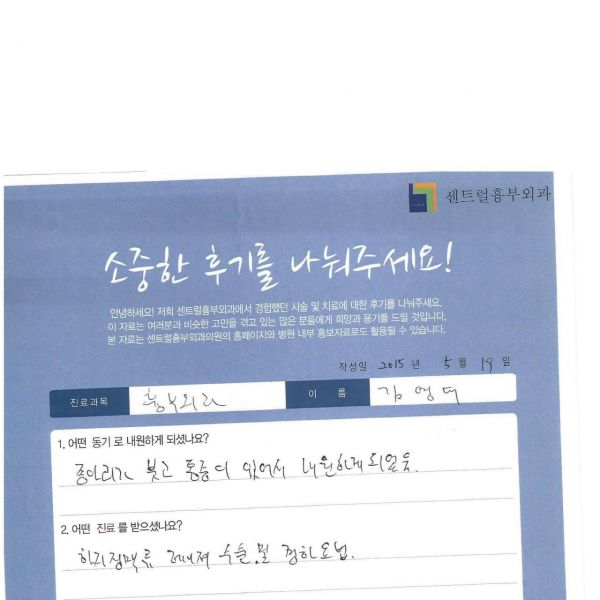 센트럴흉부외과
소중한 후기를 나눠주세요!
안녕하세요! 저희 센트럴흉부외과에서 경험했던 시술 및 치료에 대한 후기를 나눠주세요.
이 자료는 여러분과 비슷한 고민을 겪고 있는 많은 분들에게 희망과 용기를 드릴 것입니다.
본 자료는 센트럴흉부외과의원의 홈페이지와 병원 내부 홍보자료로도 활용될 수 있습니다.
작성일 2015 년 5 월 19 일
진료과목 흉부외과 이 름 김영덕
1. 어떤 동기 로 내원하게 되셨나요?
종아리가 붓고 통증이 있어서 내원하게 되었음.
2. 어떤 진료 를 받으셨나요?
하지정맥류 레이져 수술 및 경화요법.